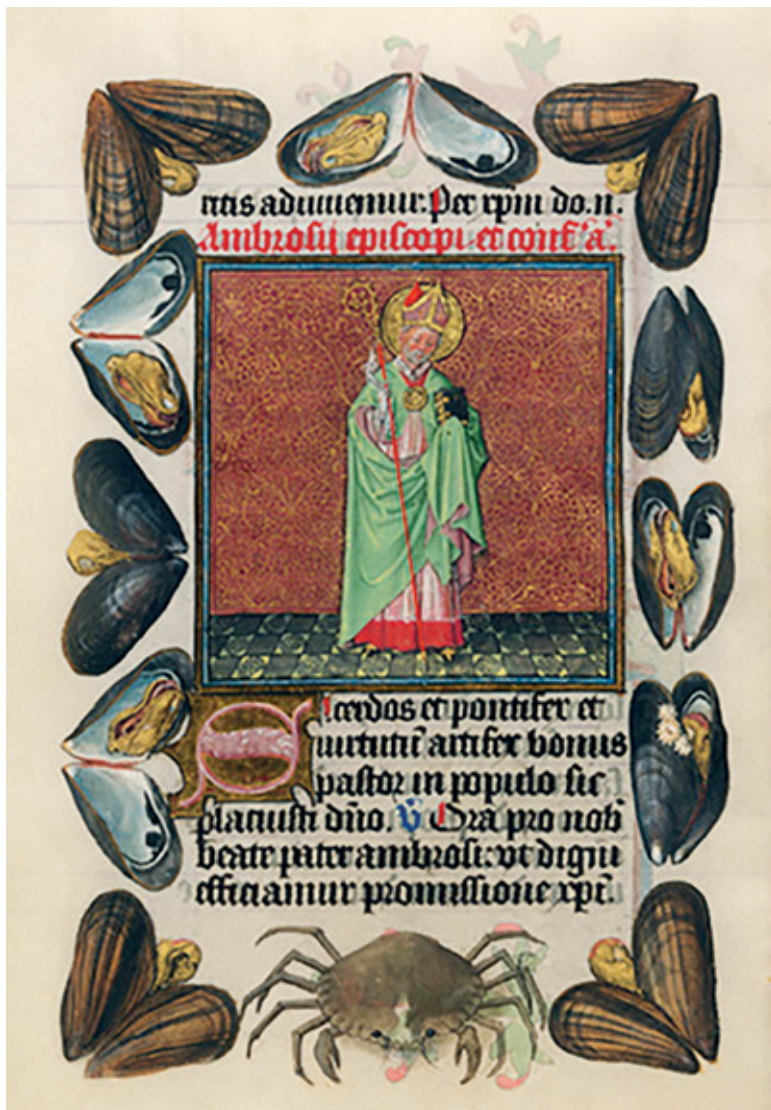 titis adiuvemur. Per xpm do. n.
Ambrosij episcopi et conf. a.
Sacerdos et pontifex et
virtutū artifex bonus
pastor in populo sic
placuisti dño. V Ora pro nob
beate pater ambrosi: vt digni
efficiamur promissione xpi.